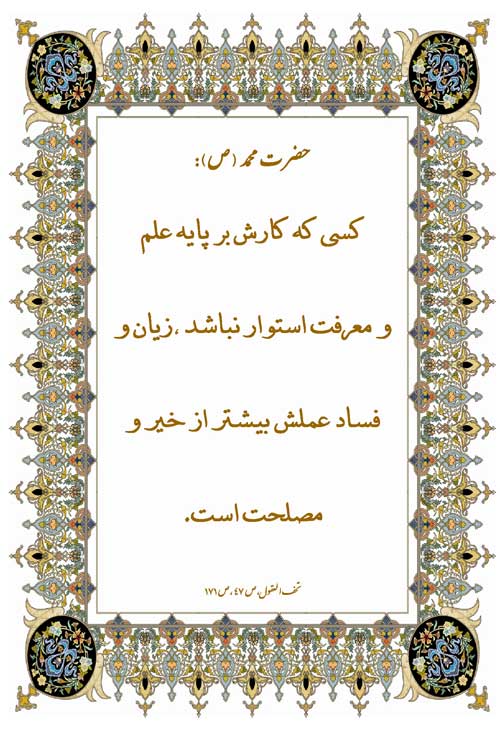 حضرت محمد (ص):
کسی که کارش بر پایه علم
و معرفت استوار نباشد ،زیان و
فساد عملش بیشتر از خیر و
مصلحت است.
تحف العقول، ص ۴۷، ص ۱۷۱